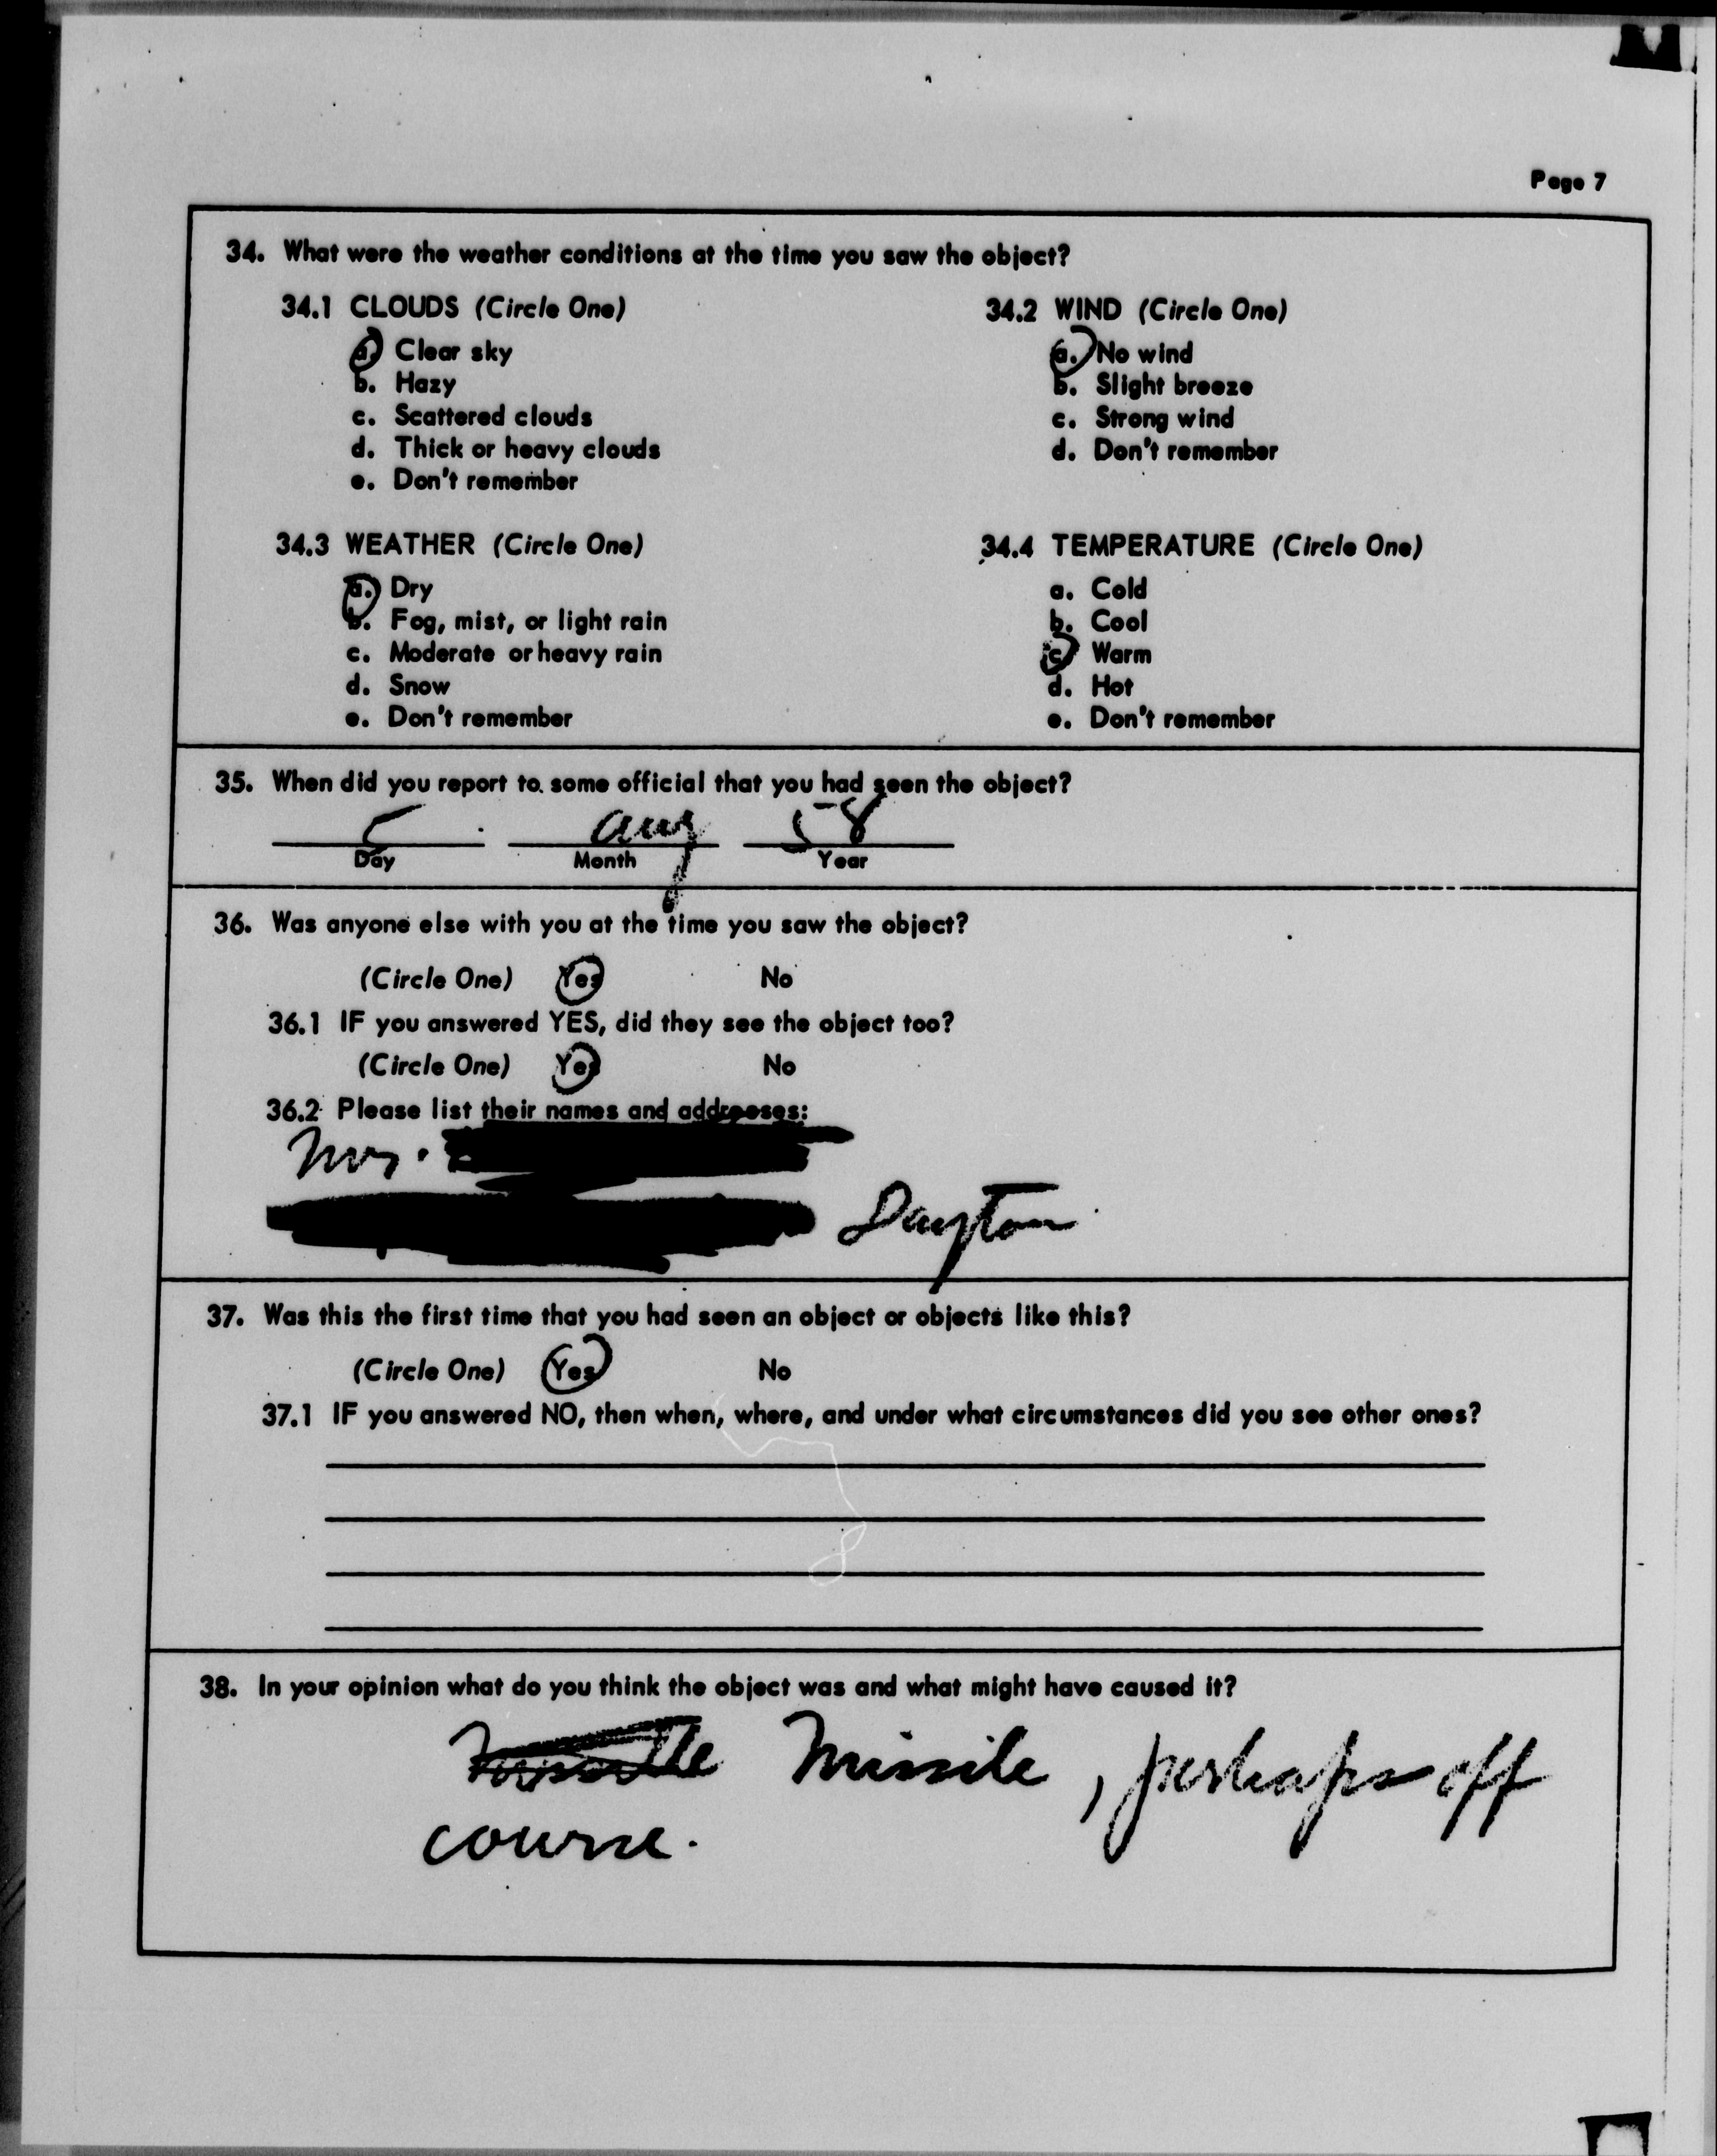 Page 7
34. What were the weather conditions at the time you saw the object?
34.1 CLOUDS (Circle One)
a. Clear sky
b. Hazy
c. Scattered clouds
d. Thick or heavy clouds
e. Don't remember
34.2 WIND (Circle One)
a. No wind
b. Slight breeze
c. Strong wind
d. Don't remember
34.3 WEATHER (Circle One)
a. Dry
b. Fog, mist, or light rain
c. Moderate or heavy rain
d. Snow
e. Don't remember
34.4 TEMPERATURE (Circle One)
a. Cold
b. Cool
c. Warm
d. Hot
e. Don't remember
35. When did you report to some official that you had seen the object?
5 Aug 58
Day Month Year
36. Was anyone else with you at the time you saw the object?
(Circle One) Yes No
36.1 IF you answered YES, did they see the object too?
(Circle One) Yes No
36.2 Please list their names and addresses:
Mrs.
Dayton
37. Was this the first time that you had seen an object or objects like this?
(Circle One) Yes No
37.1 IF you answered NO, then when, where, and under what circumstances did you see other ones?
38. In your opinion what do you think the object was and what might have caused it?
Missile, perhaps off
course.